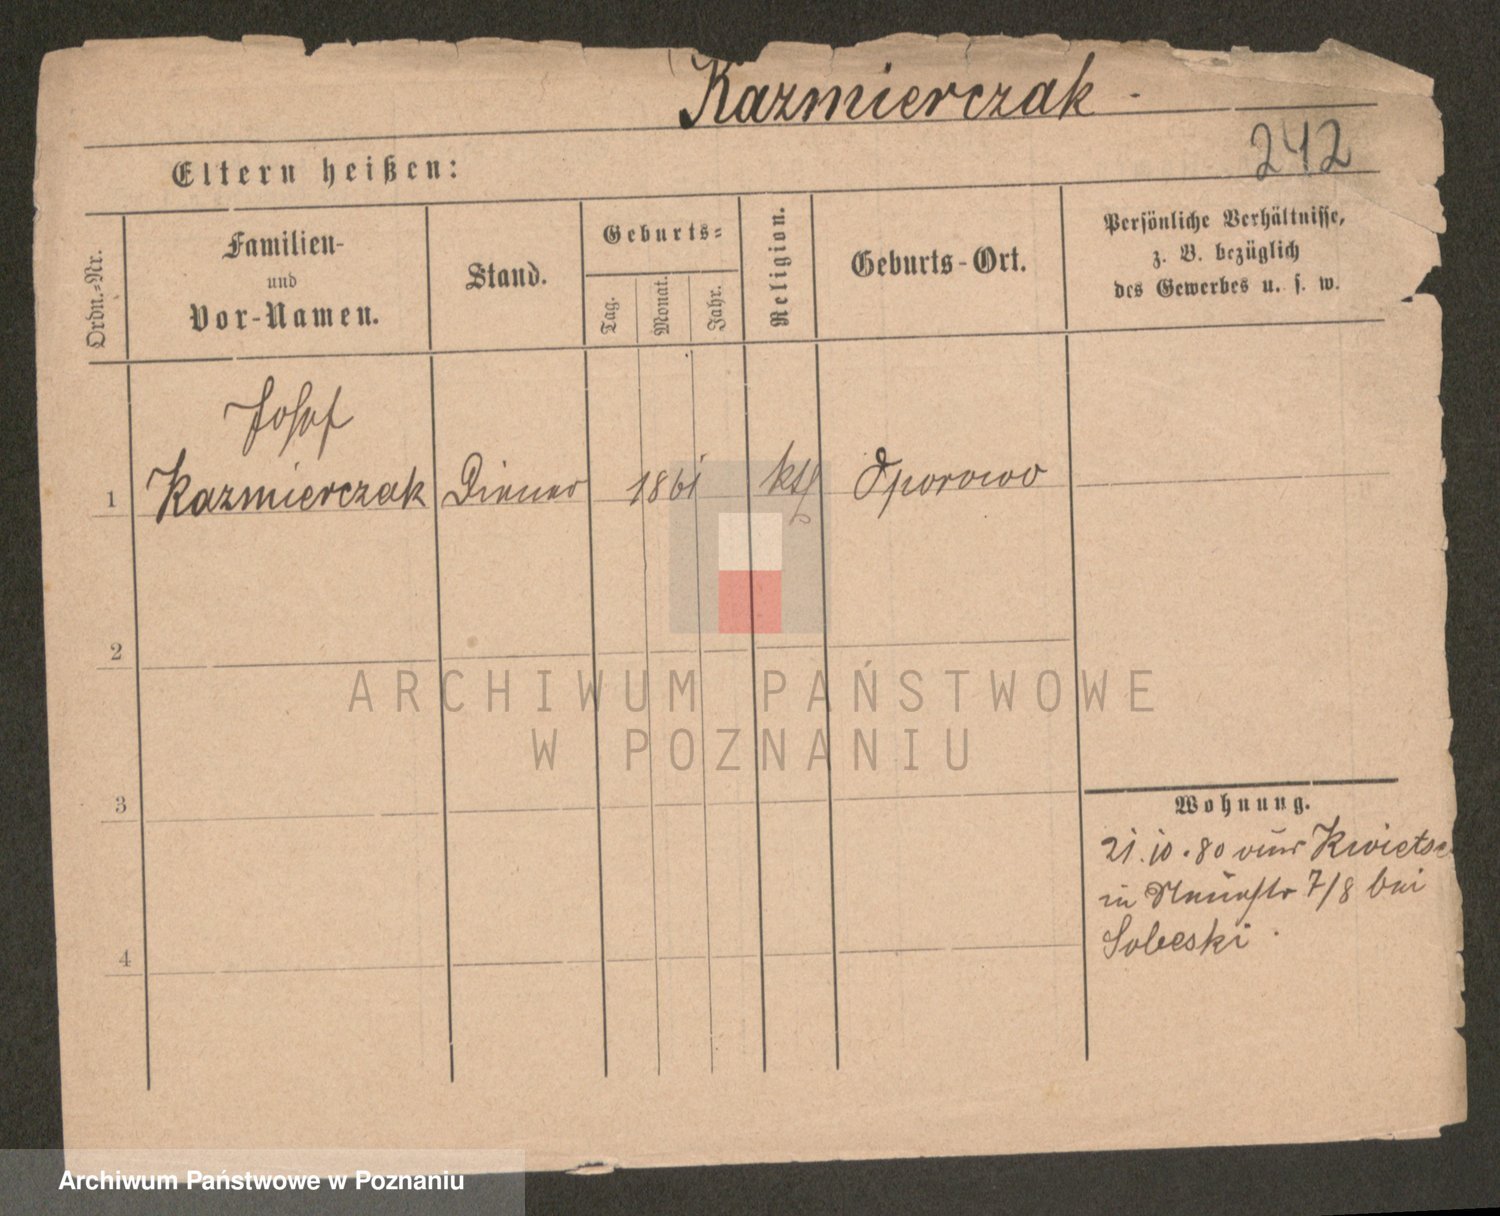 Kazmierczak
242
Eltern heißen:
Ordn.-Nr.
Familien-
und
Vor-Namen.
Stand.
Geburts-
Tag.
Monat.
Jahr.
Religion.
Geburts-Ort.
Persönliche Verhältnisse,
z. B. bezüglich
des Gewerbes u. s. w.
Josef
1 Kazmierczak Diener 1861 kth Oporowo
2
3
4
Wohnung.
21.10.80 aus
in Neuestr 7/8 bei
Sobeski.
ARCHIWUM PAŃSTWOWE
W POZNANIU
Archiwum Państwowe w Poznaniu